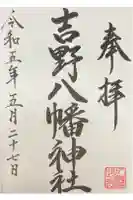 奉拝
吉野八幡神社
令和五年五月二十七日